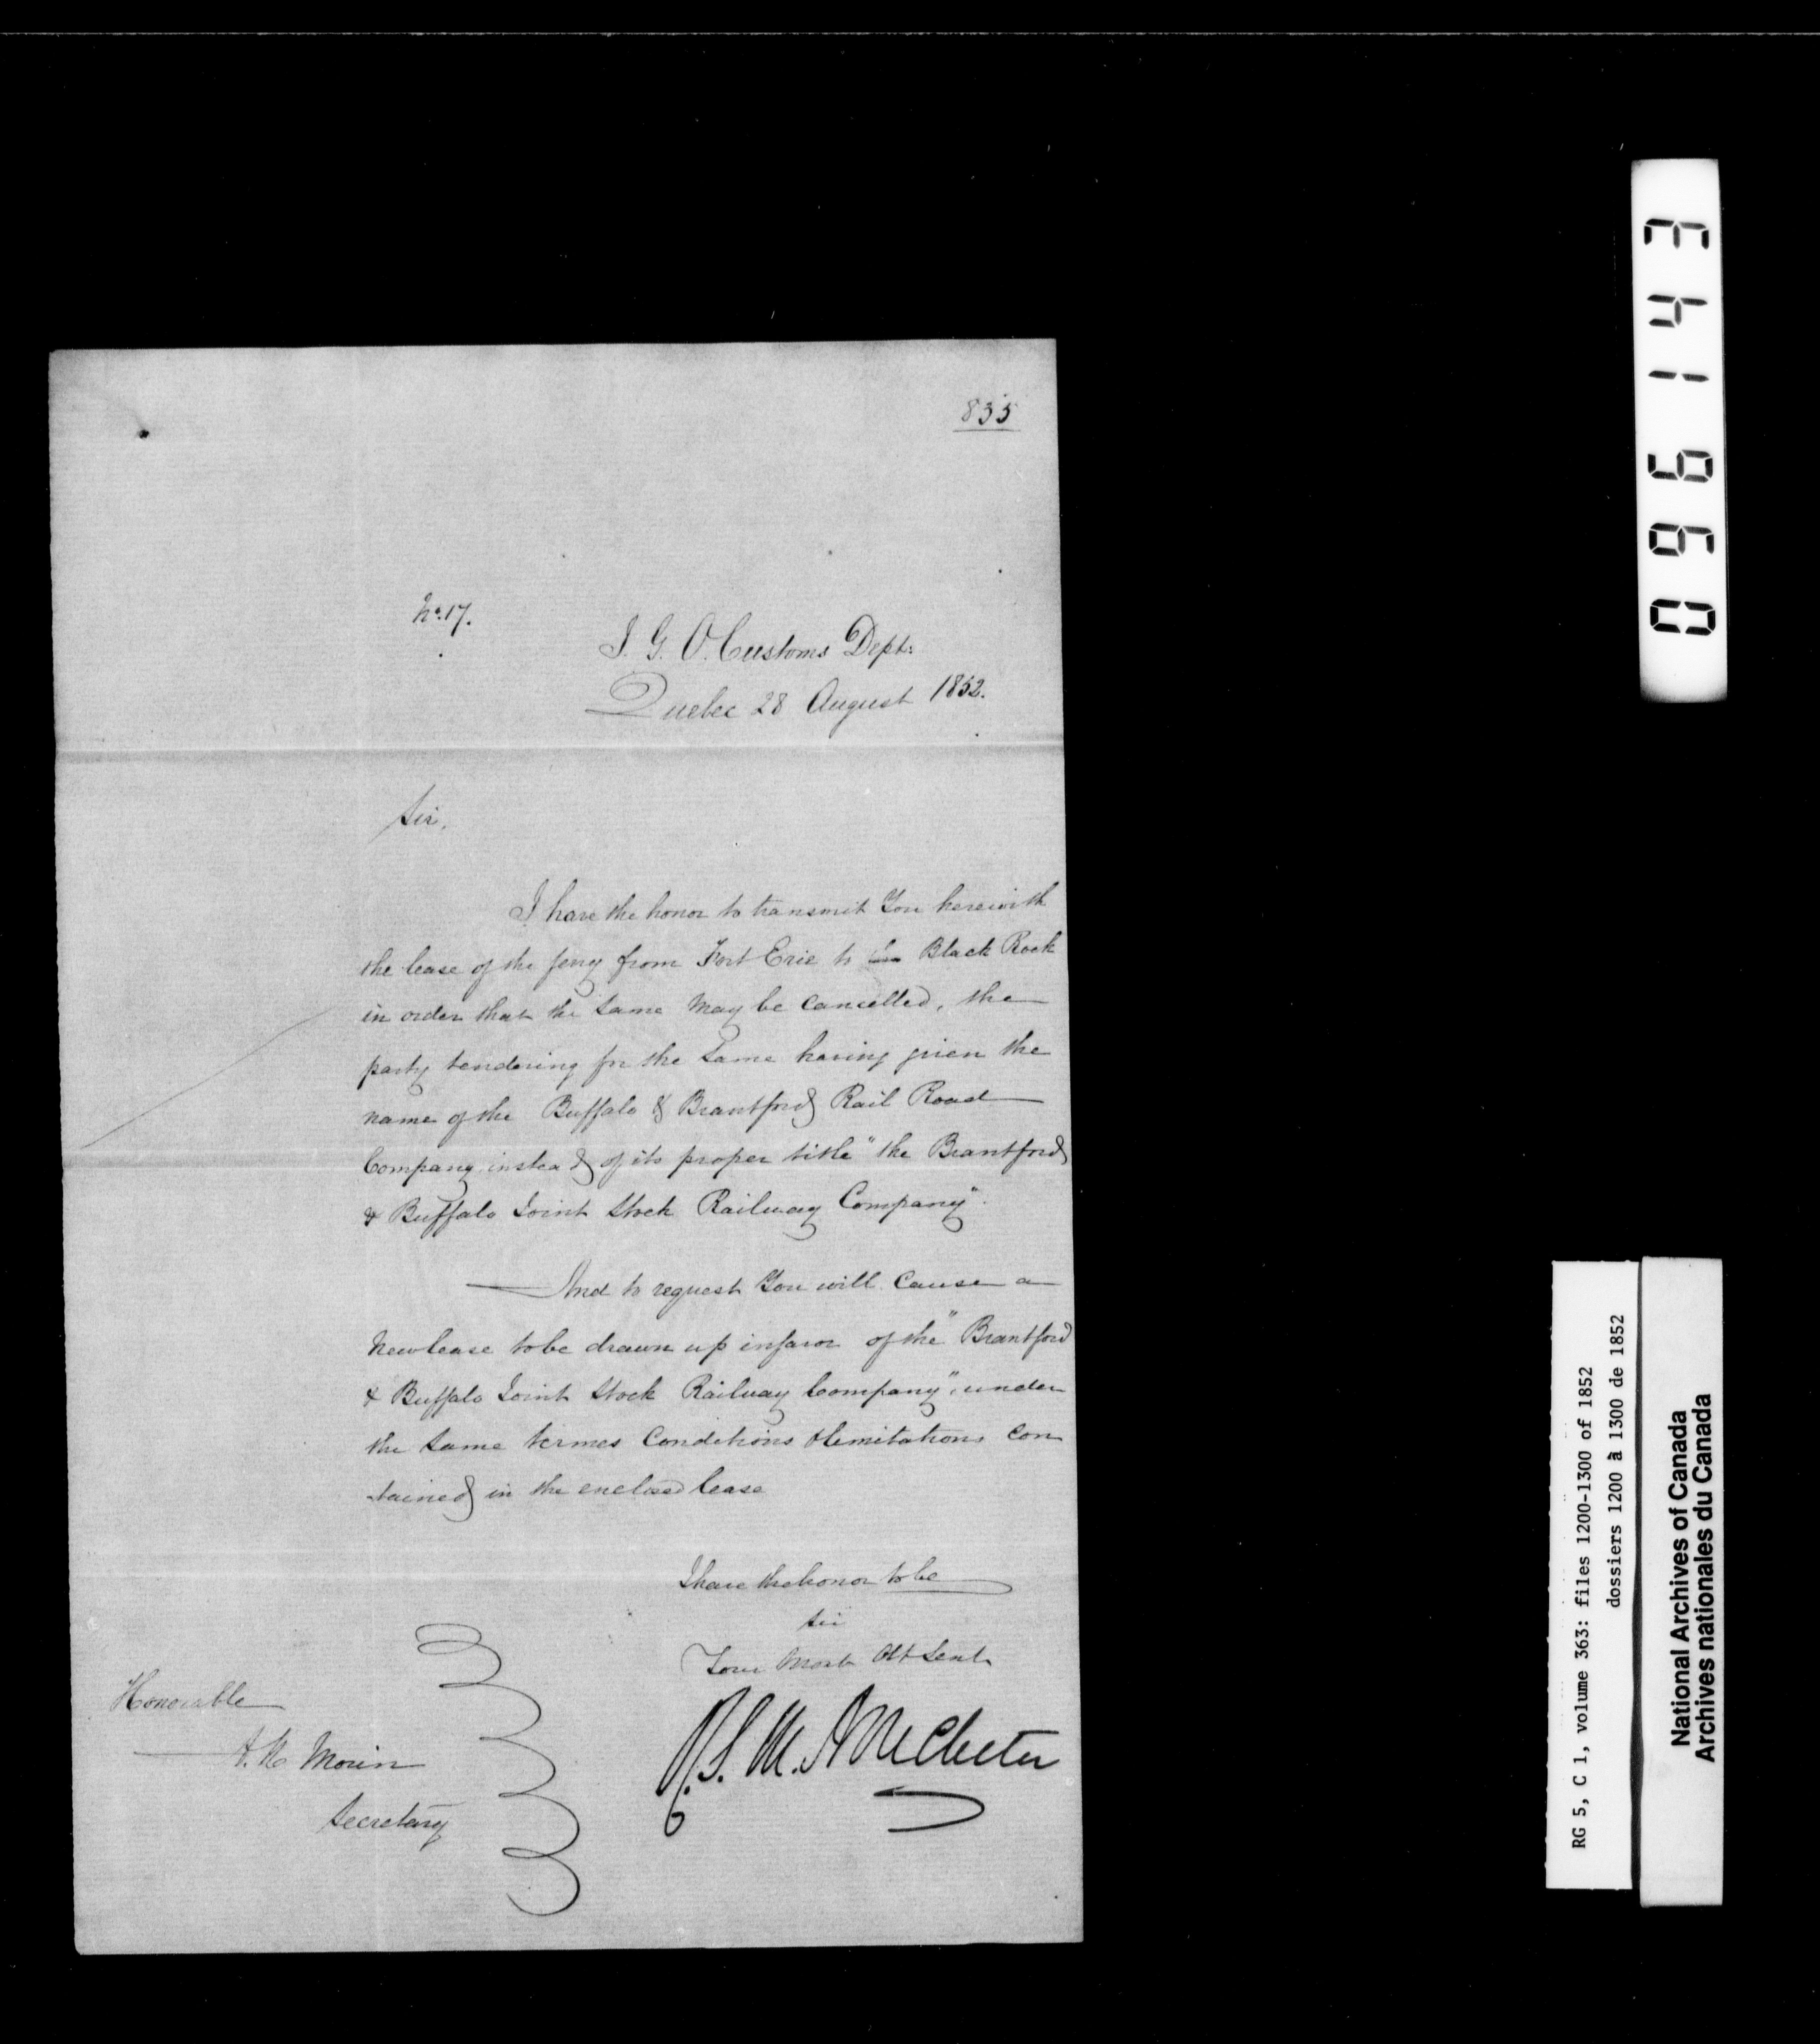 835
No. 17.
I. G. O. Customs Dept:
Quebec 28 August 1852.
Sir,
I have the honor to transmit You herewith
the lease of the ferry from Fort Erie to Black Rock
in order that the same may be cancelled, the
party tendering for the same having given the
name of the Buffalo & Brantford Rail Road
Company instead of its proper title "the Brantford
& Buffalo Joint Stock Railway Company".
And to request You will cause a
New lease to be drawn up in favor of the "Brantford
& Buffalo Joint Stock Railway Company", under
the same termes Conditions & limitations con
tained in the enclosed lease
I have the honor to be
Sir
Your Most Obt Servt
R. S. M. Bouchette
Honorable
A. N. Morin
Secretary
096143
RG 5, C 1, volume 363: files 1200-1300 of 1852
dossiers 1200 à 1300 de 1852
National Archives of Canada
Archives nationales du Canada